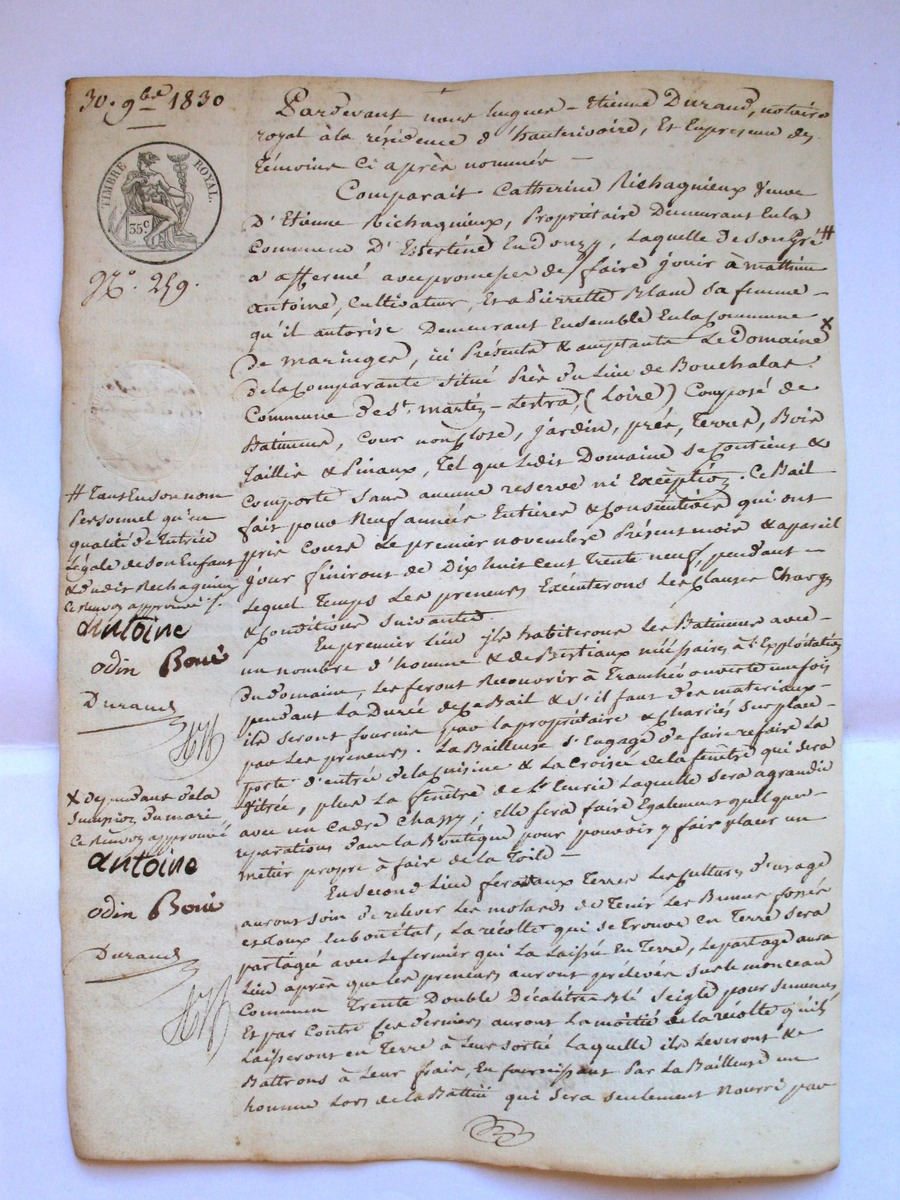 30. 9bre 1830
TIMBRE ROYAL
35c
No. 259.
Pardevant nous hugues-Etienne Durand, notaire
royal à la résidence d'hauterivoire, Et Enpresence des
témoins Ci après nommés —
Comparait Catherine Richagnieux Veuve
D'Etienne Richagnieux, Propriétaire Demeurant Enla
Commune D'Essertine EnDonzy, Laquelle de son Gré #
a affermé avec promesse de faire jouir à mathieu
antoine, Cultivateur, Et a Pierrette Blanc sa femme —
qu'il autorise Demeurant Ensemble Enla Commune
de maringes, ici Présents & acceptants Le Domaine X
dela Comparante situé Près du Lieu de Bouchalas
Commune de st. martin-Lestra, (Loire) Composé de
Batiments, Cour non Close, jardin, prés, Terres, Bois
Taillis & Pinaux, Tel que Ledit Domaine se Contient &
Comporte Sans aucune reserve ni Exception. Ce Bail
fait pour Neuf années Entières & Consécutives qui ont
pris Cours Le premier novembre Présent mois & a pareil
jour finiront de Dix huit Cent Trente neuf, pendant —
Lequel Temps Les preneurs Exécuterons Les Clauses Charges
& Conditions Suivantes.
En premier Lieu ils habiterons Les Batiments avec
un nombre d'homme & de Bestiaux nécessaires à L'Exploitation
du domaine, Les feront Recouvrir à Tranché ouverte une fois
pendant La Durée de Ce Bail & s'il faut des materiaux —
ils seront fournis par la propriétaire & Charriés Sur place —
par Les preneurs. La Bailleuse s'Engage de faire refaire La
porte d'entrée dela Cuisine & La Croisée de la fenêtre qui sera
Vitrée, plus La fenêtre de L'Ecurie Laquelle sera agrandie
avec un Cadre Chassy; Elle fera faire Egalement quelques
reparations dans la Boutique pour pouvoir y faire placer un
metier propre à faire de la Toile —
En second Lieu feront aux Terres Les Cultures d'usage
aurons soin de relever Les molards de Tenir Les Bunes fossés
En bon état, La récolte qui se trouve En Terre sera
partagée avec Le fermier qui La Laissée En Terre, Le partage aura
Lieu après que Les preneurs auront prélevés Sur le monceau
Commun Trente Double Décalitres blé Seigle pour semences
Et par Contre Ces derniers auront La moitié de la récolte qu'ils
Laisseront en Terre à Leur Sortie Laquelle ils Leveront &
Battrons à Leur frais, En fournissant Par La Bailleuse un
homme Lors de la Battue qui sera seulement Nourri par
# Tant En son nom
Personnel qu'en
qualité de Tutrice
Légale de son Enfant
& dudit Richagnieux
Ce Renvoi approuvé
antoine
odin Boué
Durand
X dependant de la
du mari,
Ce Renvoi approuvé
antoine
odin Boué
Durand